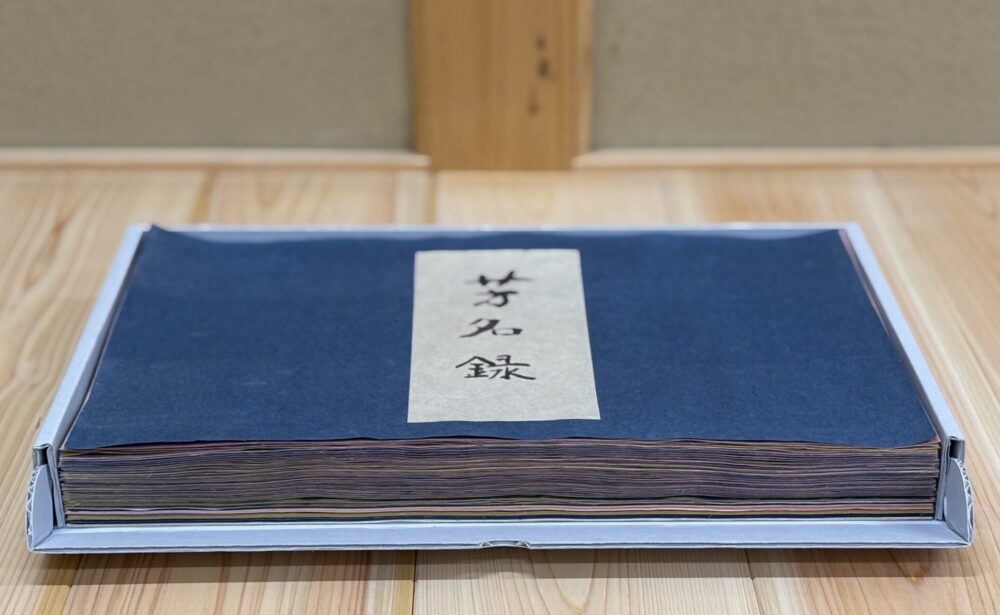 芳名録